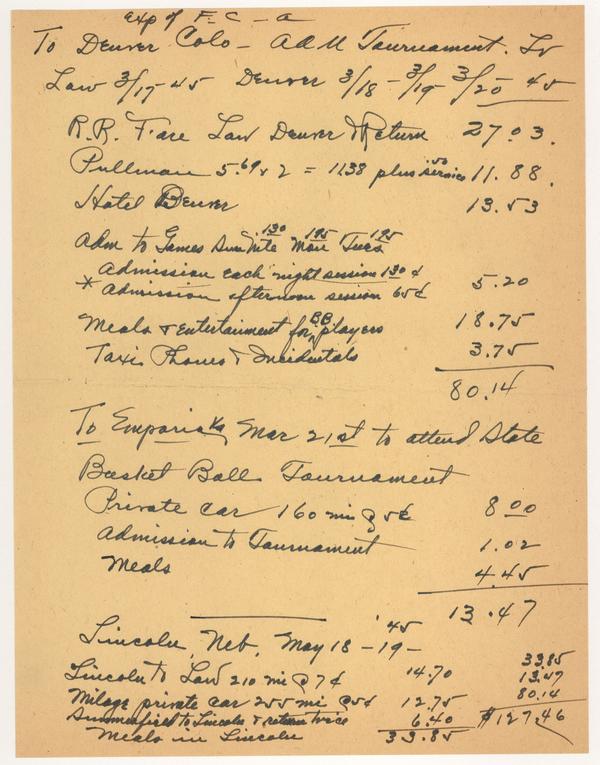 Exp of F-C-a
To Denver Colo - AAU Tournament. Lv
Law 3/17-45 Denver 3/18-3/19 3/20 45
R.R. Fare Law Denver & Return 27.03.
Pullman 5.69 x 2 = 11.38 plus .50 service 11.88.
Hotel Denver 13.53
130 195 195
Adm to Games Sun Nite Mon Tues
Admission each night session 130 ¢ 5.20
* Admission afternoon session 65¢
Meals & Entertainment for BB players 18.75
Taxi Phones & Incidentals 3.75
80.14
To Emporia Ks Mar 21st to attend State
Basket Ball Tournament
Private car 160 mi @ 5¢ 8.00
Admission to Tournament 1.02
Meals 4.45
13.47
Lincoln, Neb, May 18-19- '45
33.85
Lincoln to Law 210 mi @ 7¢ 14.70 13.47
Milage private car 255 mi @ 5¢ 12.75 80.14
Summerfield to Lincoln & return twice $127.46
Meals in Lincoln 6.40
33.85